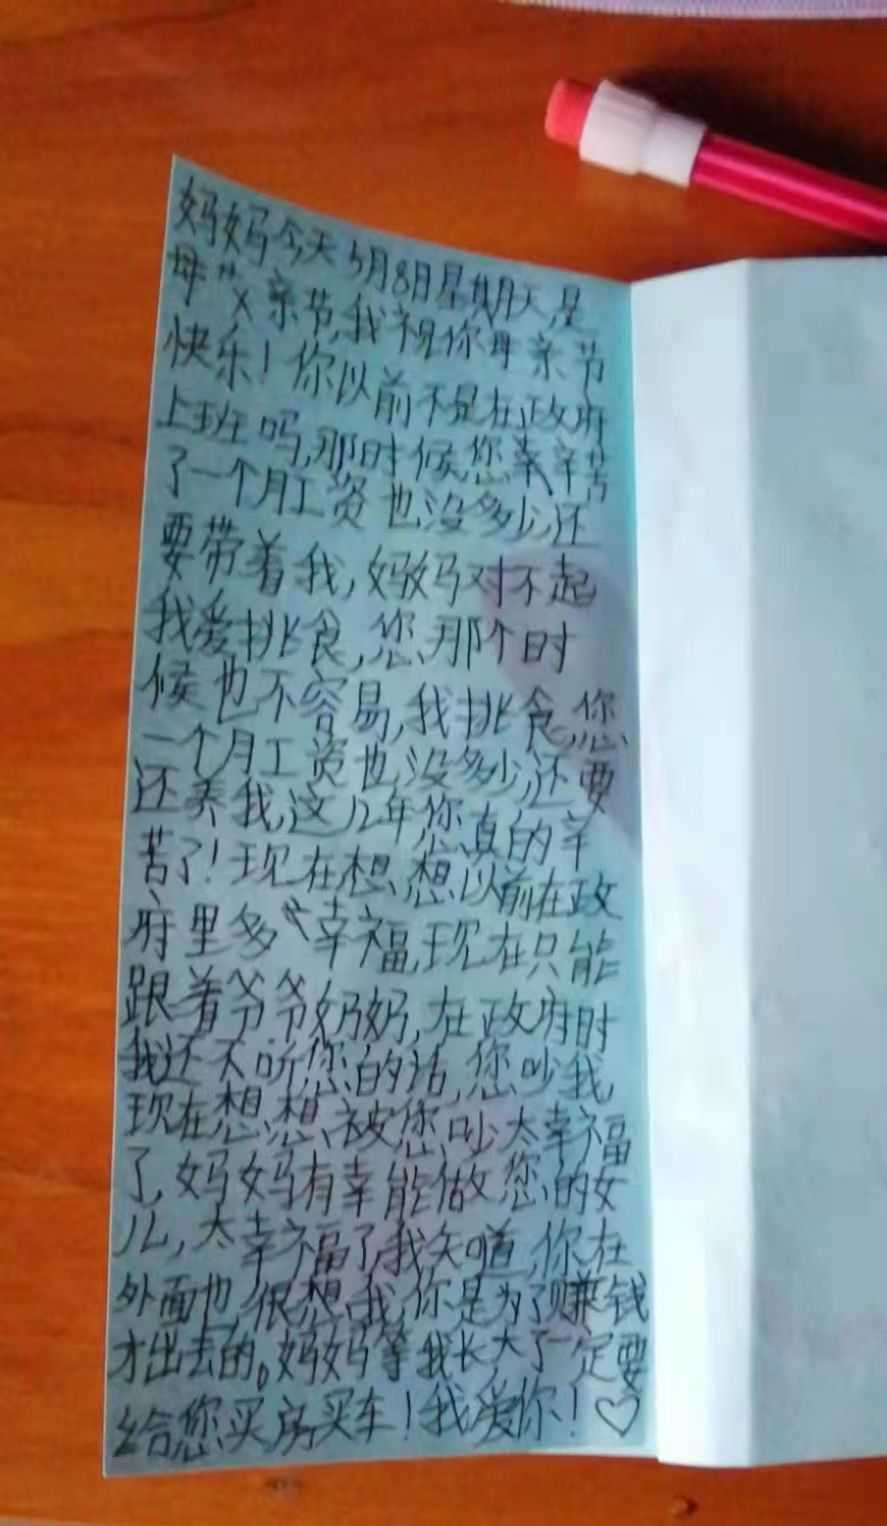 妈妈今天5月8日星期天,是
母亲节,我祝你母亲节
快乐！你以前不是在政府
上班吗,那时候您辛苦
了一个月工资也没多少,还
要带着我,妈妈对不起
我爱挑食,您那个时
候也不容易,我挑食,您
一个月工资也没多少,还要
还养我,这几年您真的辛
苦了！现在想想以前在政
府里多幸福,现在只能
跟着爷爷奶奶,在政府时
我还不听您的话,您吵我,
现在想想被您吵太幸福
了,妈妈有幸能做您的女
儿,太幸福了,我知道,你在
外面也很想我,你是为了赚钱
才出去的。妈妈等我长大了一定要
给您买房买车！我爱你！♡